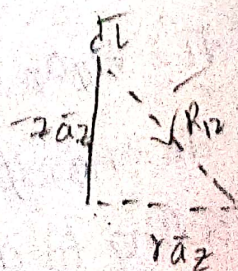 dl
-z āz
R12
r āz